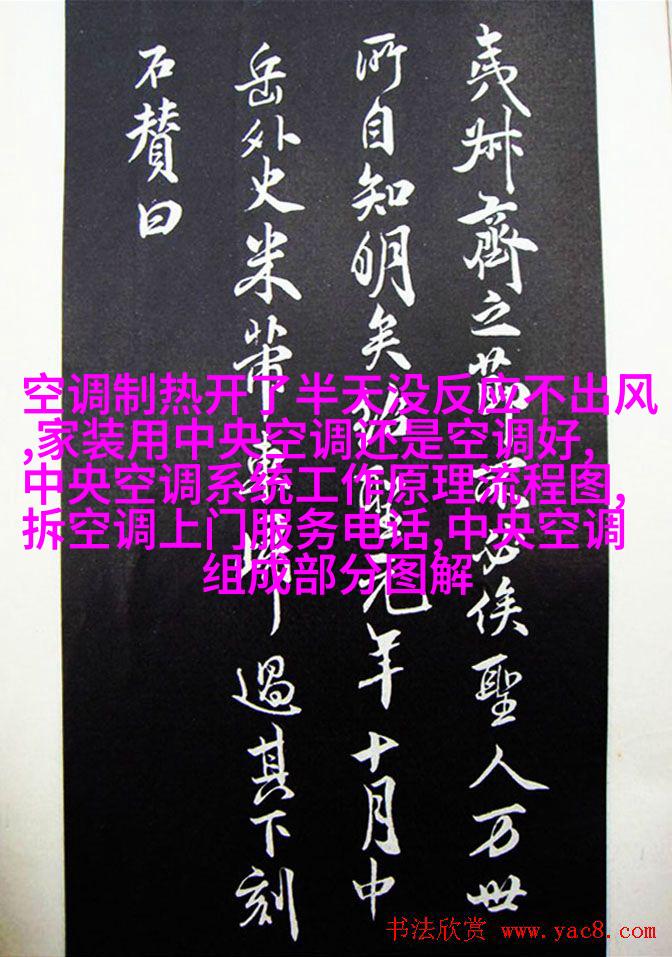 夷叔齊之節不必俟聖人万世
所自知明矣紹聖元年十月中
岳外史米芾東歸過其下刻
石賛曰
空调制热开了半天没反应不出风
,家装用中央空调还是空调好,
中央空调系统工作原理流程图,
拆空调上门服务电话,中央空调
组成部分图解
书法欣赏 www.yac8.com